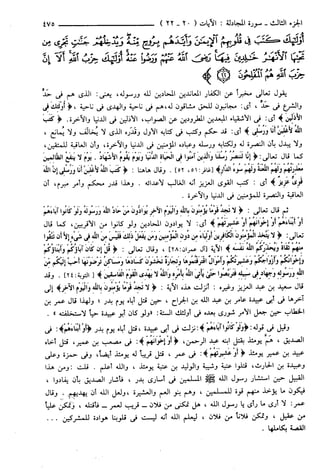 الجزء الثالث - سورة المجادلة : الآيات ( ٢٠ - ٢٢ ) ٤٧٥
أُولَئِكَ كَتَبَ فِي قُلُوبِهِمُ الْإِيمَانَ وَأَيَّدَهُم بِرُوحٍ مِّنْهُ وَيُدْخِلُهُمْ جَنَّاتٍ تَجْرِي مِن
تَحْتِهَا الْأَنْهَارُ خَالِدِينَ فِيهَا رَضِيَ اللَّهُ عَنْهُمْ وَرَضُوا عَنْهُ أُولَئِكَ حِزْبُ اللَّهِ أَلَا إِنَّ
حِزْبَ اللَّهِ هُمُ الْمُفْلِحُونَ
يقول تعالى مخبراً عن الكفار المعاندين المحادين لله ورسوله، يعنى : الذى هم فى حَدٍّ
والشرع فى حَدٍّ ، أى : مجانبون للحق مشاقون له، هم فى ناحية والهدى فى ناحية ، ﴿ أُولَئِكَ فِي
الْأَذَلِّينَ ﴾ أى : فى الأشقياء المبعدين المطرودين عن الصواب، الأذلين فى الدنيا والآخرة. ﴿ كَتَبَ
اللَّهُ لَأَغْلِبَنَّ أَنَا وَرُسُلِي ﴾ أى : قد حكم وكتب فى كتابه الأول وقَدَره الذى لا يُخالَف ولا يُمانع ،
ولا يبدل بأن النصرة له ولكتابه ورسله وعباده المؤمنين فى الدنيا والآخرة، وأن العاقبة للمتقين،
كما قال تعالى : ﴿ إِنَّا لَنَنصُرُ رُسُلَنَا وَالَّذِينَ آمَنُوا فِي الْحَيَاةِ الدُّنْيَا وَيَوْمَ يَقُومُ الْأَشْهَادُ . يَوْمَ لَا يَنفَعُ الظَّالِمِينَ
مَعْذِرَتُهُمْ وَلَهُمُ اللَّعْنَةُ وَلَهُمْ سُوءُ الدَّارِ ﴾ [غافر : ٥١، ٥٢]. وقال هاهنا : ﴿ كَتَبَ اللَّهُ لَأَغْلِبَنَّ أَنَا وَرُسُلِي إِنَّ اللَّهَ
قَوِيٌّ عَزِيزٌ ﴾ أى : كتب القوى العزيز أنه الغالب لأعدائه . وهذا قدر محكم وأمر مبرم، أن
العاقبة والنصرة للمؤمنين فى الدنيا والآخرة .
ثم قال تعالى : ﴿ لَا تَجِدُ قَوْمًا يُؤْمِنُونَ بِاللَّهِ وَالْيَوْمِ الْآخِرِ يُوَادُّونَ مَنْ حَادَّ اللَّهَ وَرَسُولَهُ وَلَوْ كَانُوا آبَاءَهُمْ
أَوْ أَبْنَاءَهُمْ أَوْ إِخْوَانَهُمْ أَوْ عَشِيرَتَهُمْ ﴾ أى : لا يوادون المحادين ولو كانوا من الأقربين، كما قال
تعالى : ﴿ لَا يَتَّخِذِ الْمُؤْمِنُونَ الْكَافِرِينَ أَوْلِيَاءَ مِن دُونِ الْمُؤْمِنِينَ وَمَن يَفْعَلْ ذَلِكَ فَلَيْسَ مِنَ اللَّهِ فِي شَيْءٍ إِلَّا أَن تَتَّقُوا
مِنْهُمْ تُقَاةً وَيُحَذِّرُكُمُ اللَّهُ نَفْسَهُ ﴾ الآية [آل عمران : ٢٨]، وقال تعالى : ﴿ قُلْ إِن كَانَ آبَاؤُكُمْ وَأَبْنَاؤُكُمْ
وَإِخْوَانُكُمْ وَأَزْوَاجُكُمْ وَعَشِيرَتُكُمْ وَأَمْوَالٌ اقْتَرَفْتُمُوهَا وَتِجَارَةٌ تَخْشَوْنَ كَسَادَهَا وَمَسَاكِنُ تَرْضَوْنَهَا أَحَبَّ إِلَيْكُم مِّنَ
اللَّهِ وَرَسُولِهِ وَجِهَادٍ فِي سَبِيلِهِ فَتَرَبَّصُوا حَتَّى يَأْتِيَ اللَّهُ بِأَمْرِهِ وَاللَّهُ لَا يَهْدِي الْقَوْمَ الْفَاسِقِينَ ﴾ [التوبة : ٢٤]. وقد
قال سعيد بن عبد العزيز وغيره : أنزلت هذه الآية : ﴿ لَا تَجِدُ قَوْمًا يُؤْمِنُونَ بِاللَّهِ وَالْيَوْمِ الْآخِرِ ﴾ إلى
آخرها فى أبى عبيدة عامر بن عبد الله بن الجراح ، حين قتل أباه يوم بدر ؛ ولهذا قال عمر بن
الخطاب حين جعل الأمر شورى بعده فى أولئك الستة : «ولو كان أبو عبيدة حياً لاستخلفته» .
وقيل فى قوله : ﴿ وَلَوْ كَانُوا آبَاءَهُمْ ﴾ : نزلت فى أبى عبيدة ، قتل أباه يوم بدر ﴿ أَوْ أَبْنَاءَهُمْ ﴾ : فى
الصديق ، هم يومئذ بقتل ابنه عبد الرحمن، ﴿ أَوْ إِخْوَانَهُمْ ﴾ : فى مصعب بن عمير، قتل أخاه
عبيد بن عمير يومئذ ﴿ أَوْ عَشِيرَتَهُمْ ﴾ : فى عمر ، قتل قريباً له يومئذ أيضاً، وفى حمزة وعلى
وعبيدة بن الحارث، قتلوا عتبة وشيبة والوليد بن عتبة يومئذ ، والله أعلم . قلت : ومن هذا
القبيل حين استشار رسول الله ﷺ المسلمين فى أسارى بدر ، فأشار الصديق بأن يفادوا ،
فيكون ما يؤخذ منهم قوة للمسلمين ، وهم بنو العم والعشيرة، ولعل الله أن يهديهم . وقال
عمر : لا أرى ما رأى يا رسول الله ، هل تمكنى من فلان - قريب لعمر - فأقتله ، وتمكن علياً
من عقيل ، وتمكن فلاناً من فلان ، ليعلم الله أنه ليست فى قلوبنا هوادة للمشركين ...
القصة بكاملها .